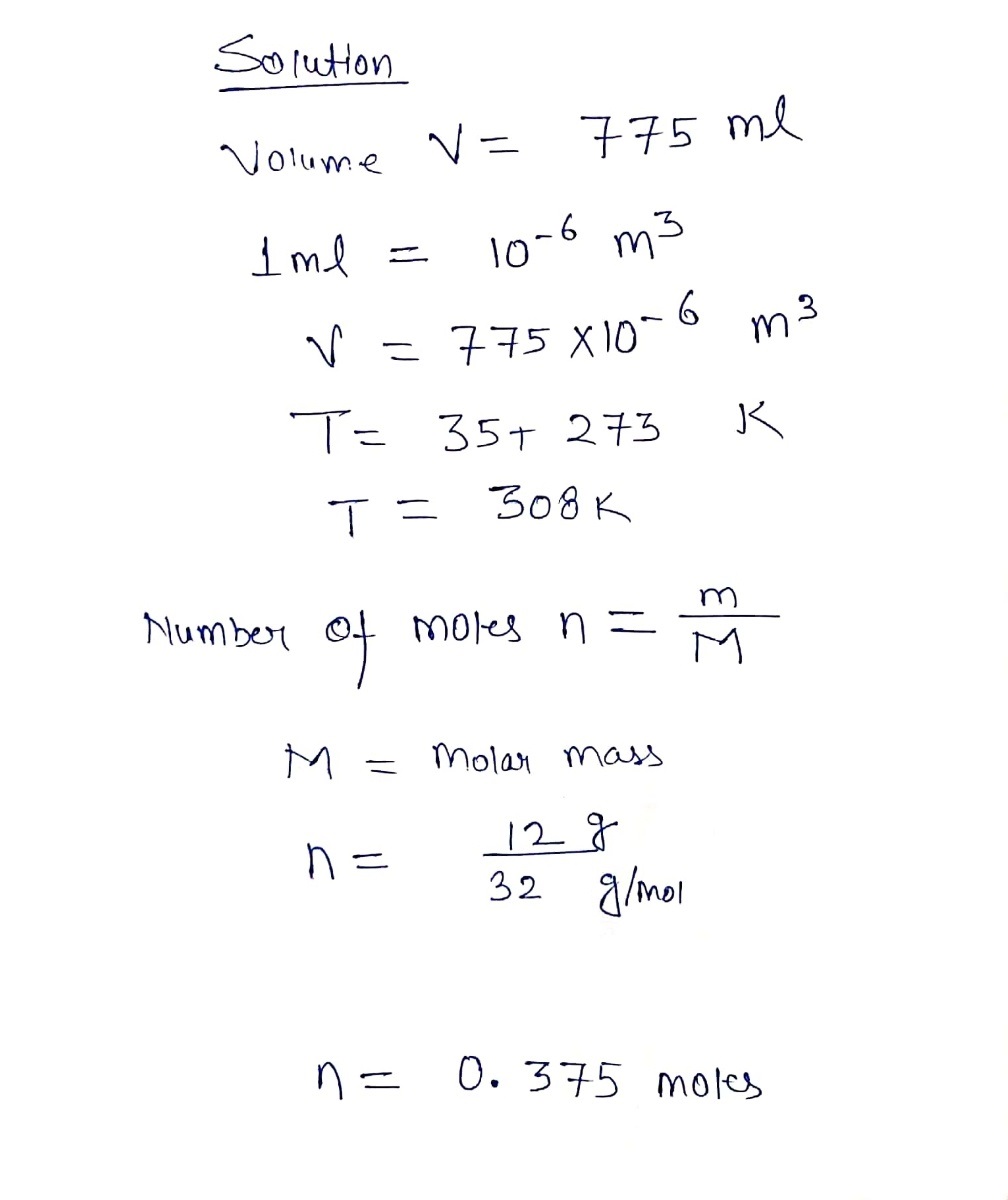 Solution
Volume V = 775 ml
1ml = 10-6 m3
V = 775 X10-6 m3
T= 35+ 273 K
T = 308K
Number of moles n = m/M
M = Molar mass
n = 12 g / 32 g/mol
n = 0.375 moles